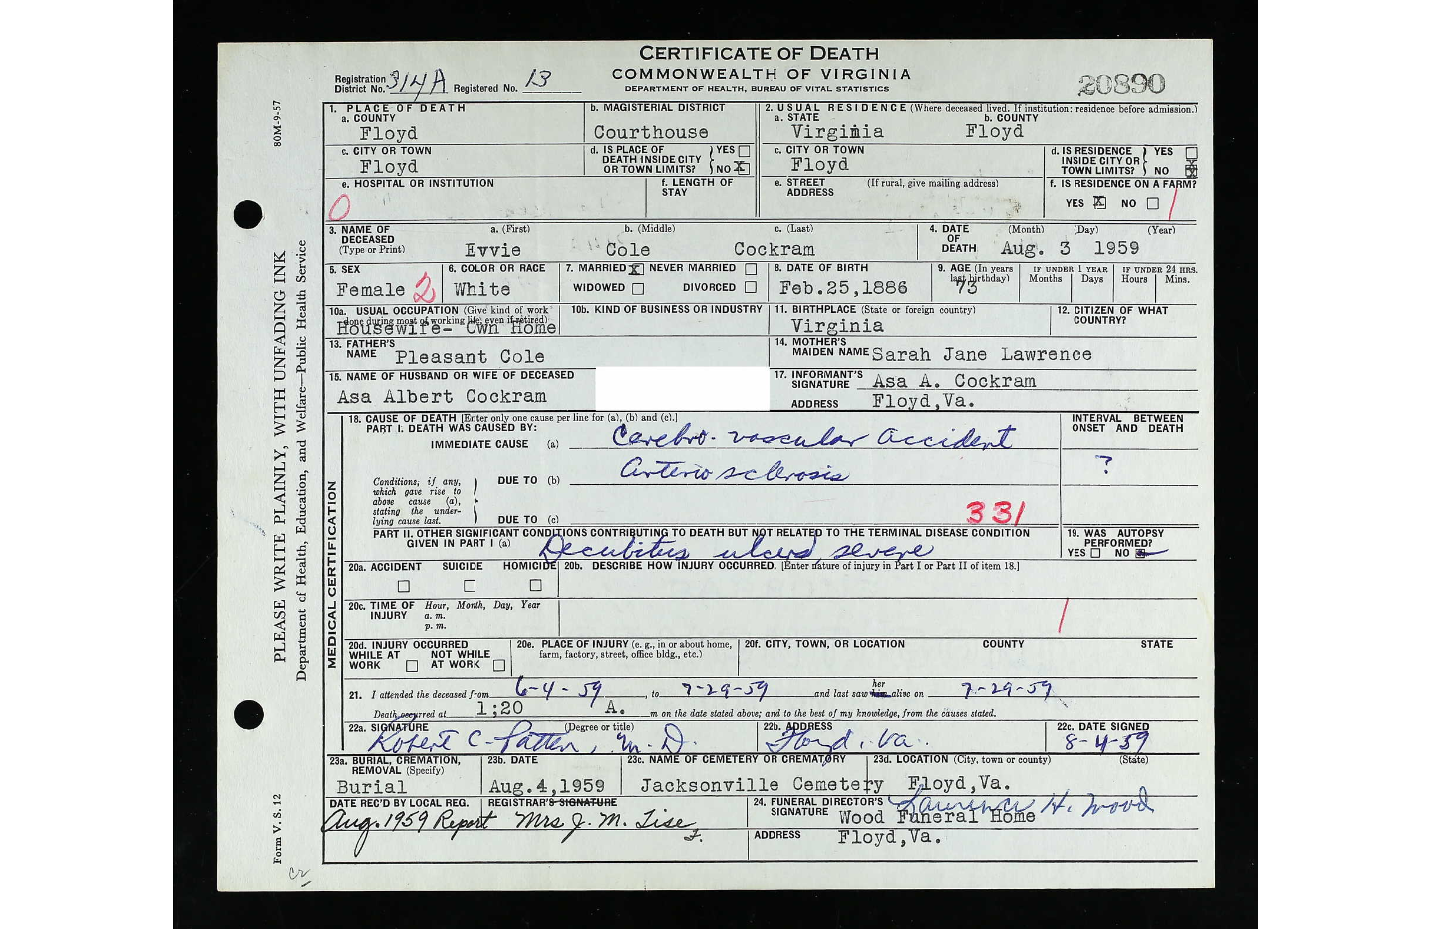 CERTIFICATE OF DEATH
COMMONWEALTH OF VIRGINIA
DEPARTMENT OF HEALTH, BUREAU OF VITAL STATISTICS
Registration District No. 314A Registered No. 13
20890
80M-9-57
1. PLACE OF DEATH
a. COUNTY Floyd
b. MAGISTERIAL DISTRICT Courthouse
2. USUAL RESIDENCE (Where deceased lived. If institution: residence before admission.)
a. STATE Virginia b. COUNTY Floyd
c. CITY OR TOWN Floyd
d. IS PLACE OF DEATH INSIDE CITY OR TOWN LIMITS? YES NO X
c. CITY OR TOWN Floyd
d. IS RESIDENCE INSIDE CITY OR TOWN LIMITS? YES NO X
e. HOSPITAL OR INSTITUTION 0
f. LENGTH OF STAY
e. STREET ADDRESS (If rural, give mailing address)
f. IS RESIDENCE ON A FARM? YES X NO
3. NAME OF DECEASED (Type or Print) a. (First) b. (Middle) c. (Last)
Evvie Cole Cockram
4. DATE OF DEATH (Month) (Day) (Year) Aug. 3 1959
5. SEX Female 2
6. COLOR OR RACE White
7. MARRIED X NEVER MARRIED WIDOWED DIVORCED
8. DATE OF BIRTH Feb.25,1886
9. AGE (In years last birthday) 73 IF UNDER 1 YEAR Months Days IF UNDER 24 HRS. Hours Mins.
10a. USUAL OCCUPATION (Give kind of work done during most of working life, even if retired) Housewife- Own Home
10b. KIND OF BUSINESS OR INDUSTRY
11. BIRTHPLACE (State or foreign country) Virginia
12. CITIZEN OF WHAT COUNTRY?
13. FATHER'S NAME Pleasant Cole
14. MOTHER'S MAIDEN NAME Sarah Jane Lawrence
15. NAME OF HUSBAND OR WIFE OF DECEASED
Asa Albert Cockram
17. INFORMANT'S SIGNATURE Asa A. Cockram
ADDRESS Floyd,Va.
MEDICAL CERTIFICATION
18. CAUSE OF DEATH [Enter only one cause per line for (a), (b) and (c).]
INTERVAL BETWEEN ONSET AND DEATH
PART I. DEATH WAS CAUSED BY:
IMMEDIATE CAUSE (a) Cerebro-vascular accident
Conditions, if any, which gave rise to above cause (a), stating the underlying cause last.
DUE TO (b) Arterio sclerosis ?
DUE TO (c) 331
PART II. OTHER SIGNIFICANT CONDITIONS CONTRIBUTING TO DEATH BUT NOT RELATED TO THE TERMINAL DISEASE CONDITION GIVEN IN PART I (a) Decubitus ulcers, severe
19. WAS AUTOPSY PERFORMED? YES NO
20a. ACCIDENT SUICIDE HOMICIDE
20b. DESCRIBE HOW INJURY OCCURRED. [Enter nature of injury in Part I or Part II of item 18.]
20c. TIME OF INJURY Hour, Month, Day, Year a. m. p. m.
20d. INJURY OCCURRED WHILE AT WORK NOT WHILE AT WORK
20e. PLACE OF INJURY (e. g., in or about home, farm, factory, street, office bldg., etc.)
20f. CITY, TOWN, OR LOCATION COUNTY STATE
21. I attended the deceased from 6-4-59, to 7-29-59 and last saw him her alive on 7-29-59
Death occurred at 1;20 A. m on the date stated above; and to the best of my knowledge, from the causes stated.
22a. SIGNATURE (Degree or title) Robert C. Patten, M.D.
22b. ADDRESS Floyd, Va.
22c. DATE SIGNED 8-4-59
23a. BURIAL, CREMATION, REMOVAL (Specify) Burial
23b. DATE Aug.4,1959
23c. NAME OF CEMETERY OR CREMATORY Jacksonville Cemetery
23d. LOCATION (City, town or county) (State) Floyd,Va.
DATE REC'D BY LOCAL REG. Aug. 1959 Report
REGISTRAR'S SIGNATURE Mrs J. M.
24. FUNERAL DIRECTOR'S SIGNATURE Lawrence H. Wood
Wood Funeral Home
ADDRESS Floyd,Va.
PLEASE WRITE PLAINLY, WITH UNFADING INK
Department of Health, Education, and Welfare—Public Health Service
Form V. S. 12